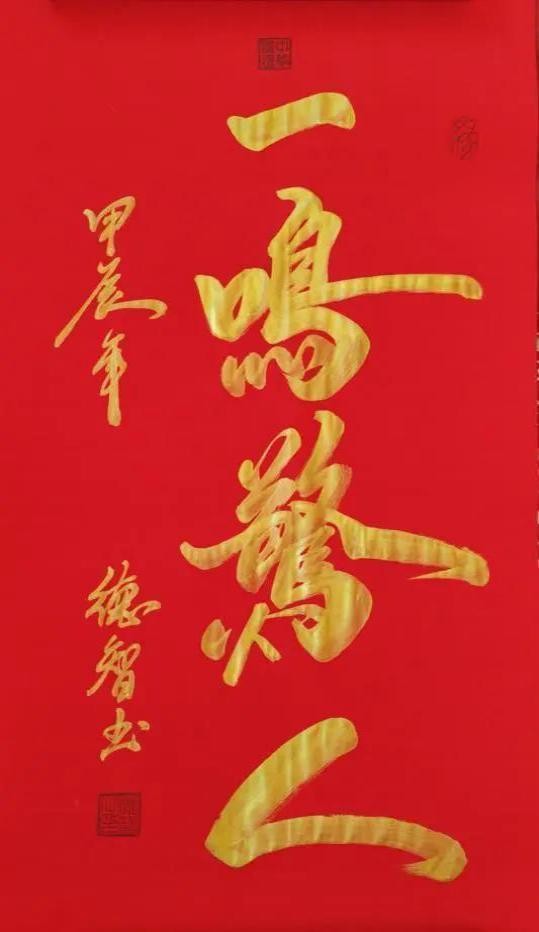 一鳴驚人
甲辰年
德智书